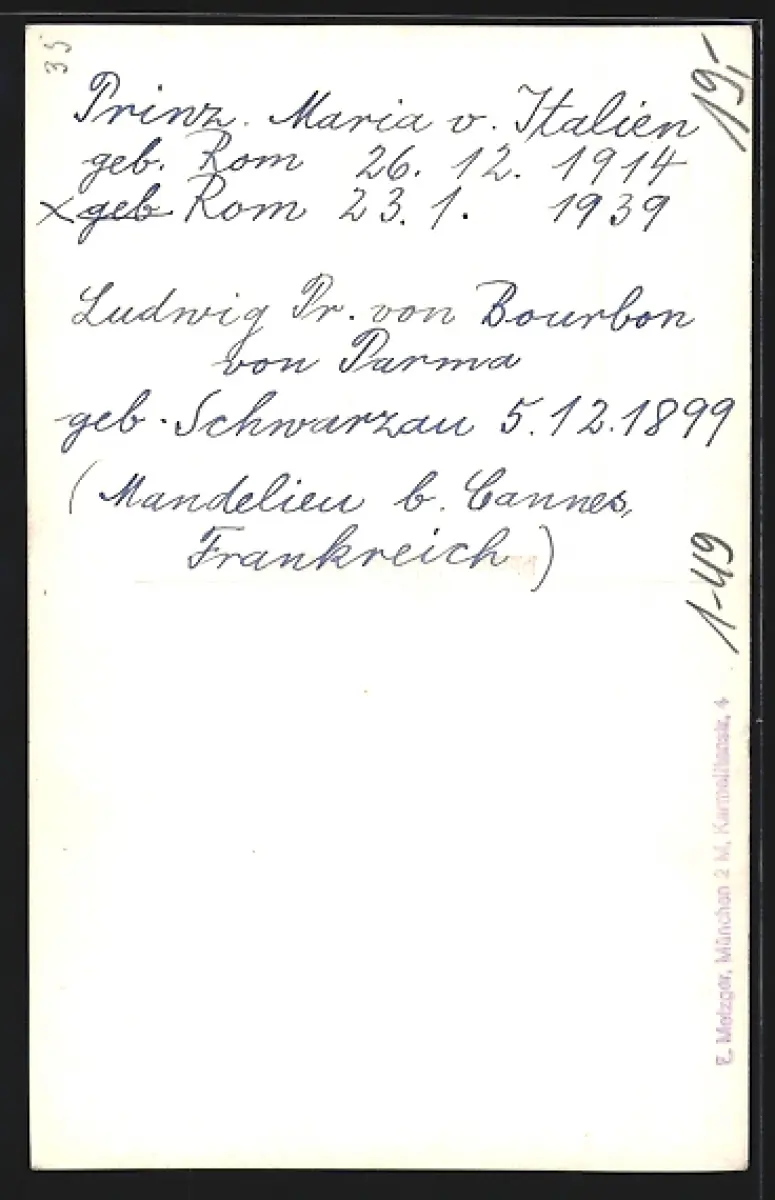 35
19,-
Prinz. Maria v. Italien
geb. Rom 26. 12. 1914
x geb Rom 23. 1. 1939
Ludwig Pr. von Bourbon
von Parma
geb. Schwarzau 5.12.1899
(Mandelieu b. Cannes,
Frankreich)
1-49
E. Metzger, München 2 M, Karmelitenstr. 4